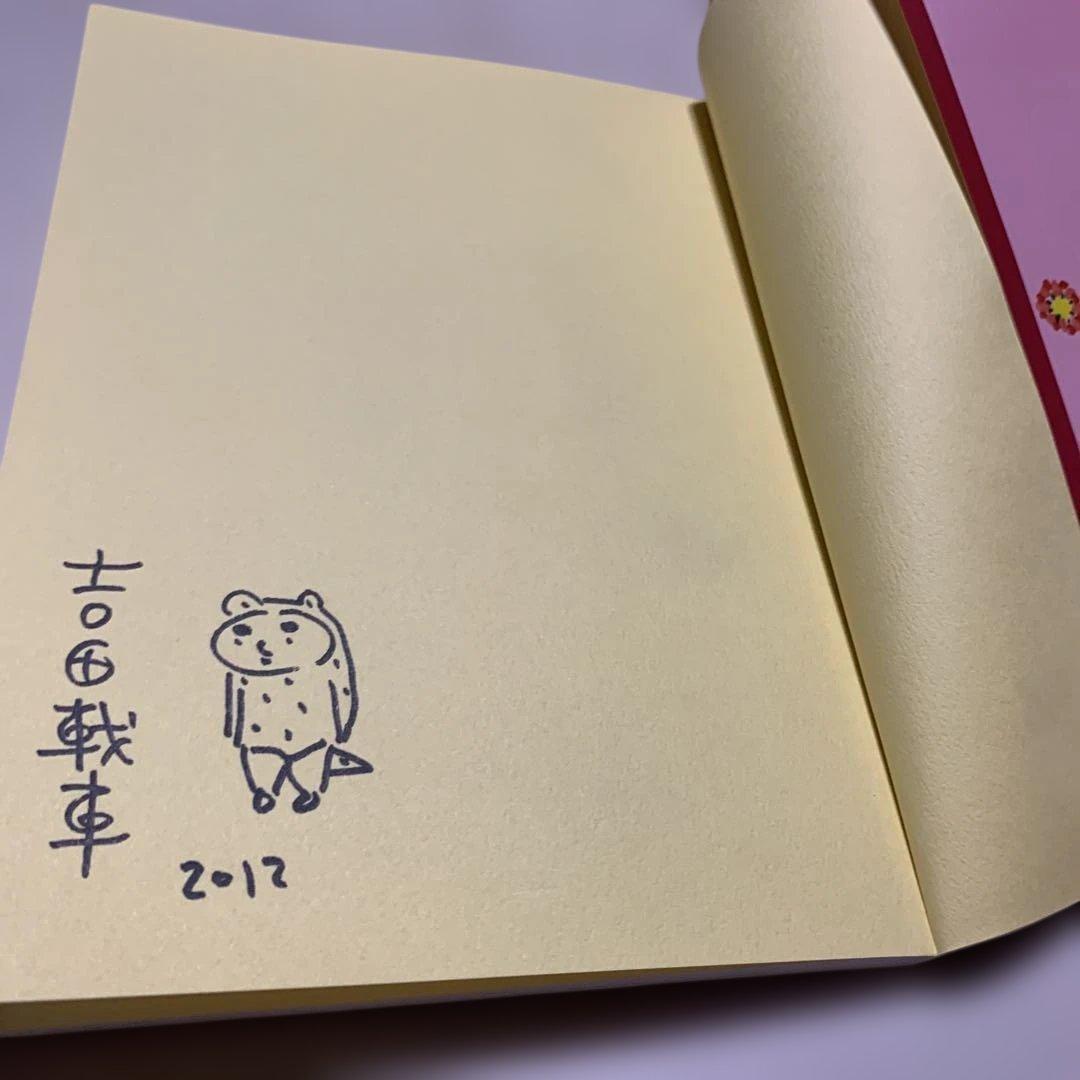 吉田戦車
2012